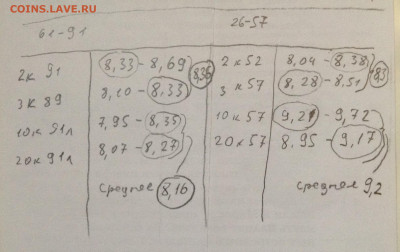 COINS.LAVE.RU
61-91 26-57
2к 91 8,33 - 8,69 8,36 2к52 8,04 - 8,38 8,3
3к 89 8,10 - 8,33 3к57 8,28 - 8,51
10к 91л 7,95 - 8,35 10к57 9,21 - 9,72
20к 91л 8,07 - 8,27 20к57 8,95 - 9,17
среднее 8,16 среднее 9,2